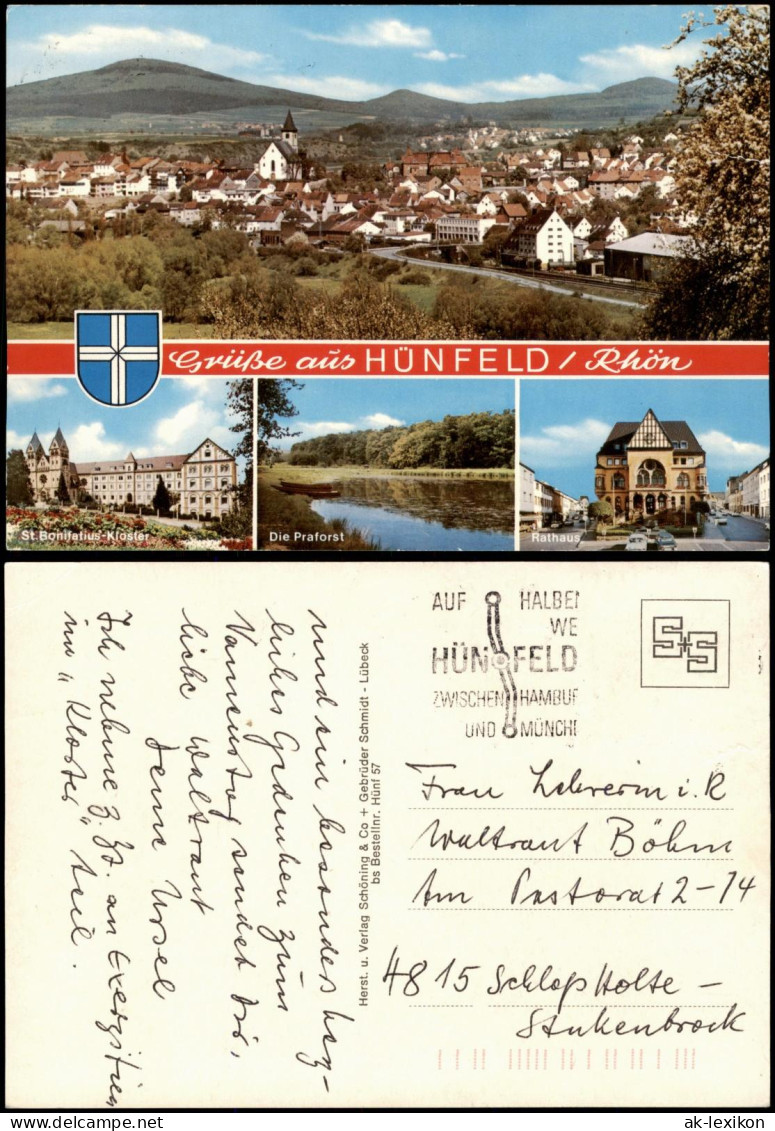 Grüße aus HÜNFELD / Rhön
St. Bonifatius-Kloster
Die Praforst
Rathaus
und ein besonders herz-
liches Gedenken zum
Namenstag sendet Dir,
liebe Waltraut
Deine Ursel
Ich nehme z. Zt. an Exerzitien
im „Kloster" teil.
Herst. u. Verlag Schöning & Co + Gebrüder Schmidt - Lübeck
bs Bestellnr. Hünf 57
AUF HALBEM
WE
HÜNFELD
ZWISCHEN HAMBUR
UND MÜNCH
S+S
Frau Lehrerin i. R
Waltraut Böhm
Am Pastorat 2-14
4815 Schloß Holte -
Stukenbrock
ak-ansichtskarten.de
ak-lexikon